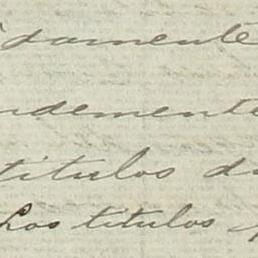 damente
ndemente
titulos d
Los titulos